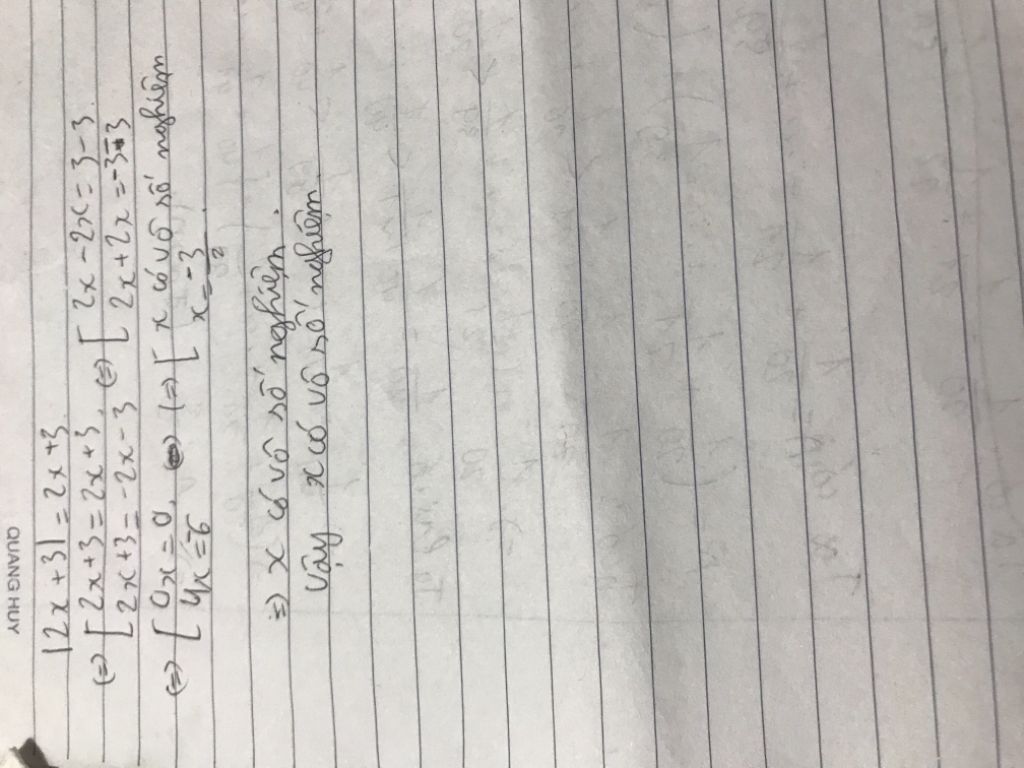 QUANG HUY
|2x+3| = 2x+3
(=) [ 2x+3 = 2x+3 (=) [ 2x-2x = 3-3
[ 2x+3 = -2x-3 [ 2x+2x = -3-3
(=) [ 0x = 0 (=) [ x có vô số nghiệm
[ 4x = -6 [ x = -3/2
=) x có vô số nghiệm.
Vậy x có vô số nghiệm.